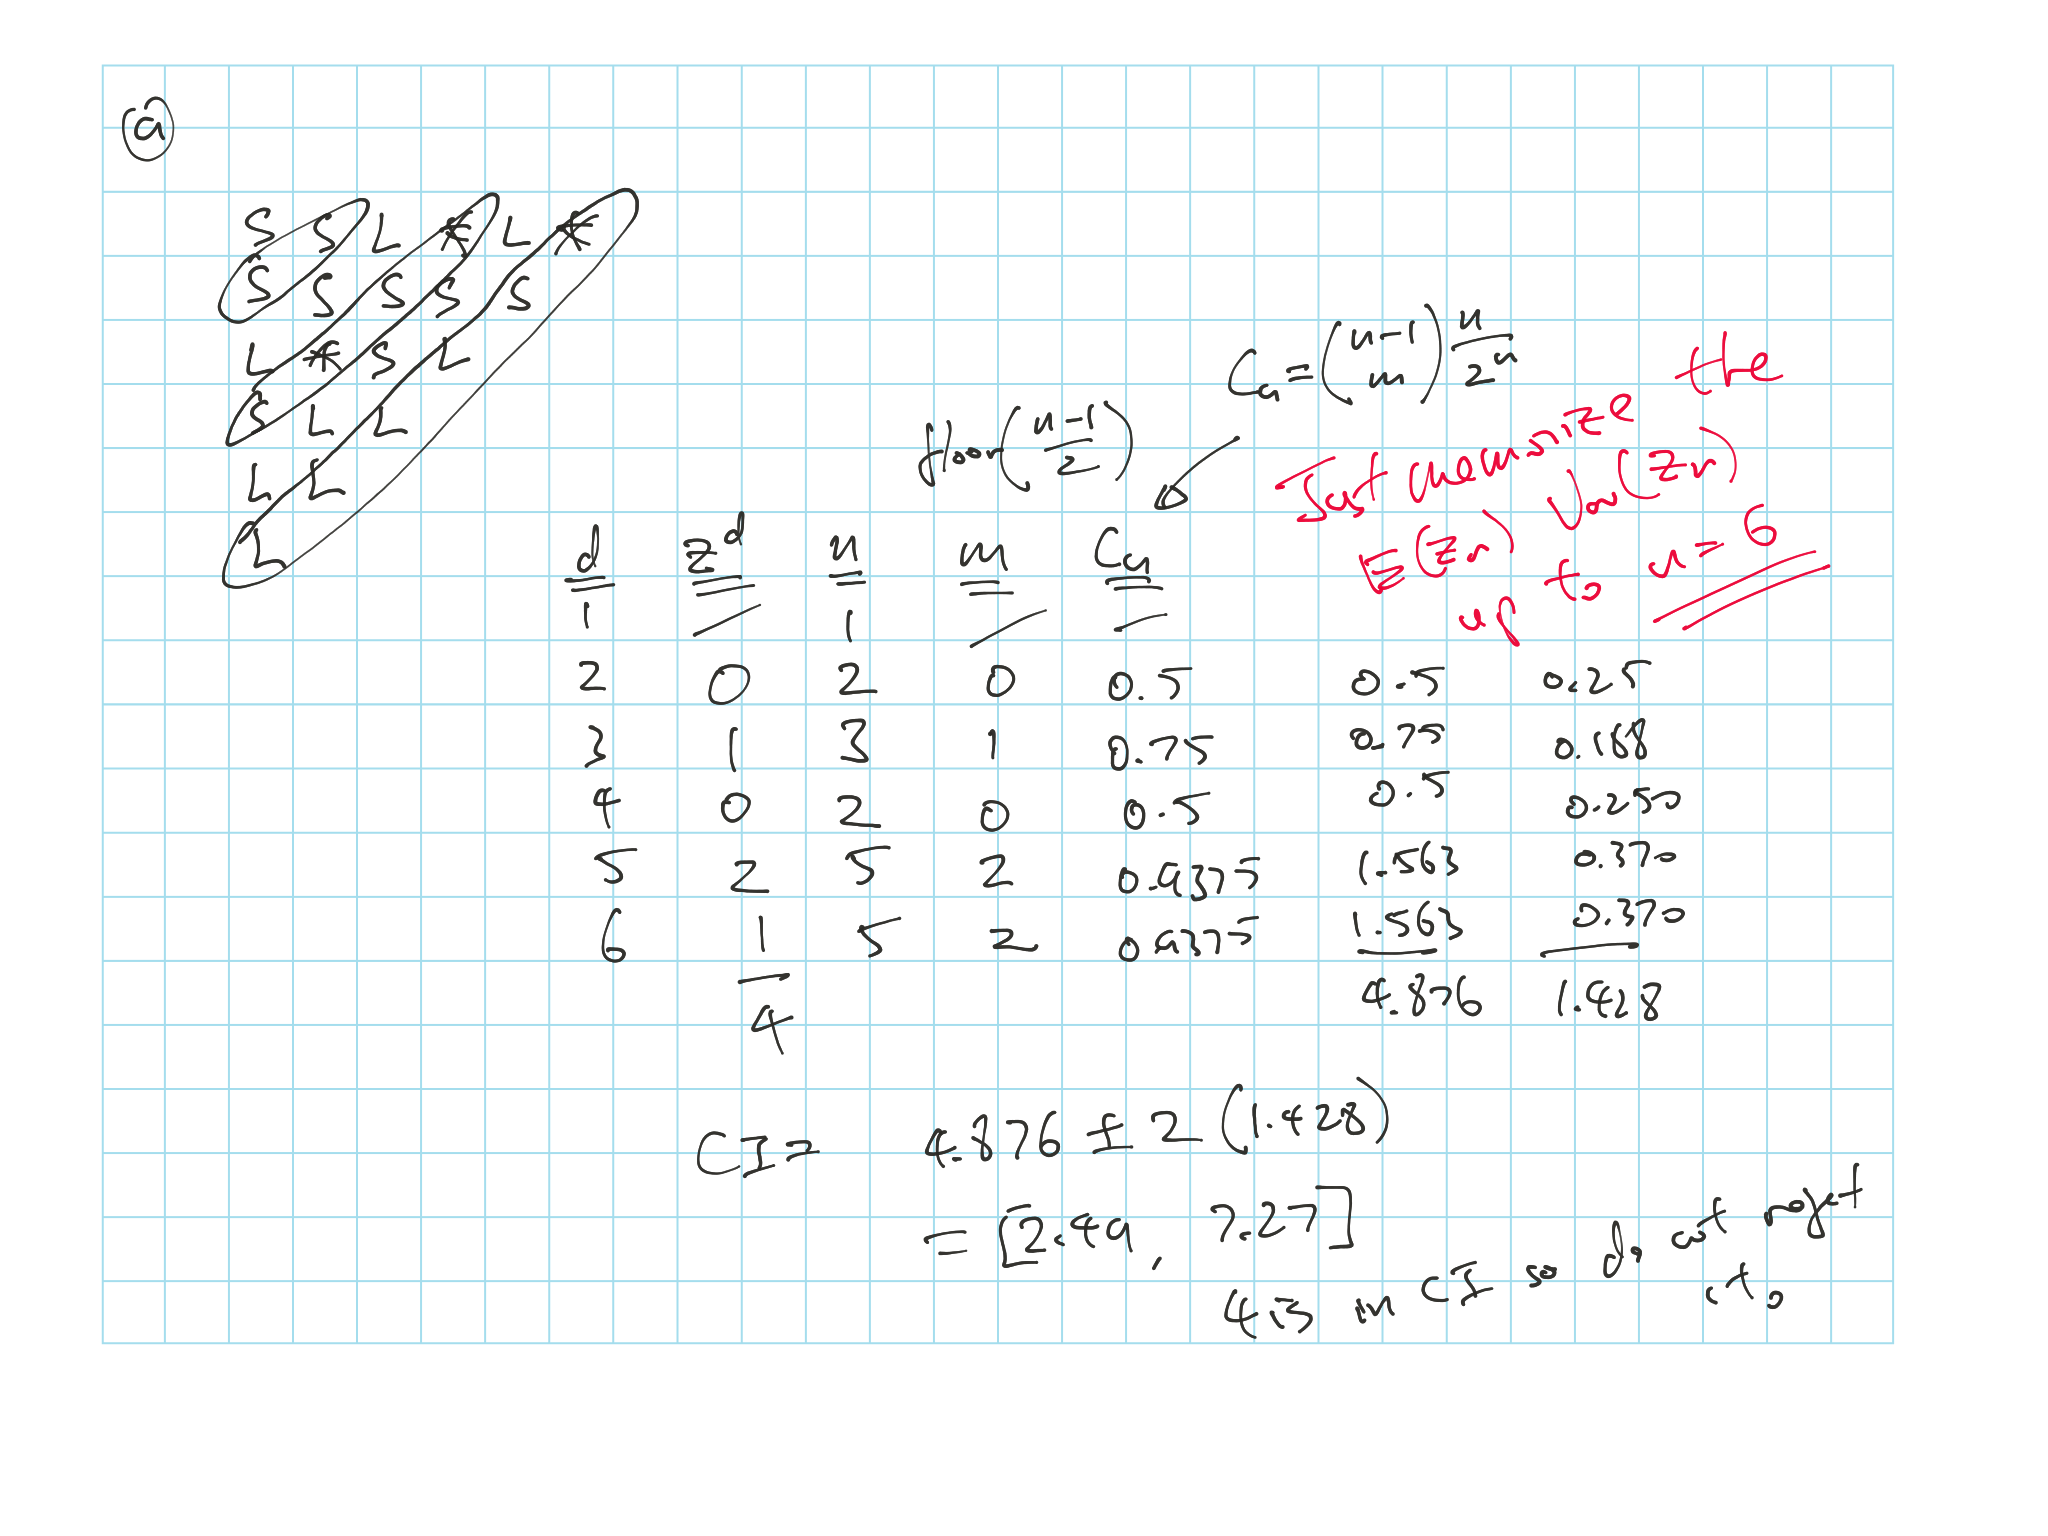 a
S S L * L *
S S S S S
L * S L
S L L
L L
L
C_n = (n-1 m) n/2^n
floor((n-1)/2)
Just memorize the
E(Zn) Var(Zn)
up to n = 6
d z^d n m C_n
1 / 1 / —
2 0 2 0 0.5 0.5 0.25
3 1 3 1 0.75 0.75 0.188
4 0 2 0 0.5 0.5 0.250
5 2 5 2 0.9375 1.563 0.370
6 1 5 2 0.9375 1.563 0.370
4 4.876 1.428
CI = 4.876 ± 2 (1.428)
= [2.49, 7.27]
4 is in CI so do not reject
it.